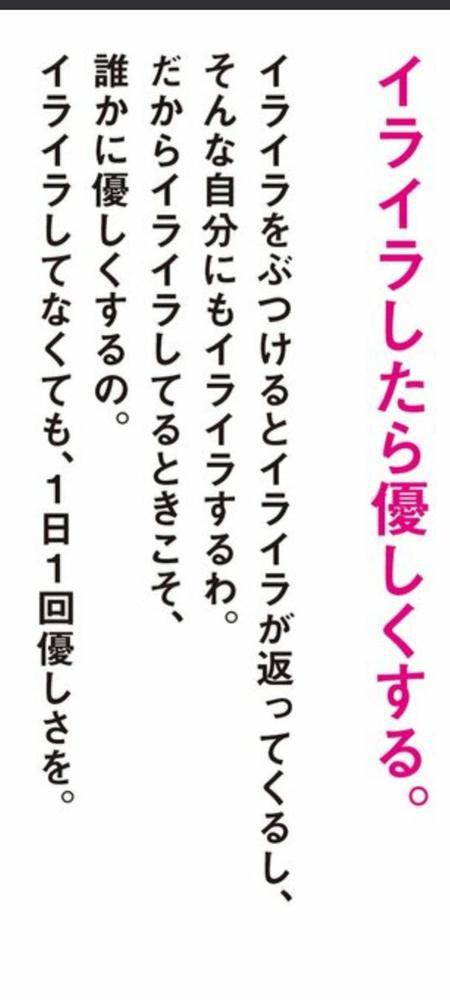 イライラしたら優しくする。
イライラをぶつけるとイライラが返ってくるし、
そんな自分にもイライラするわ。
だからイライラしてるときこそ、
誰かに優しくするの。
イライラしてなくても、1日1回優しさを。